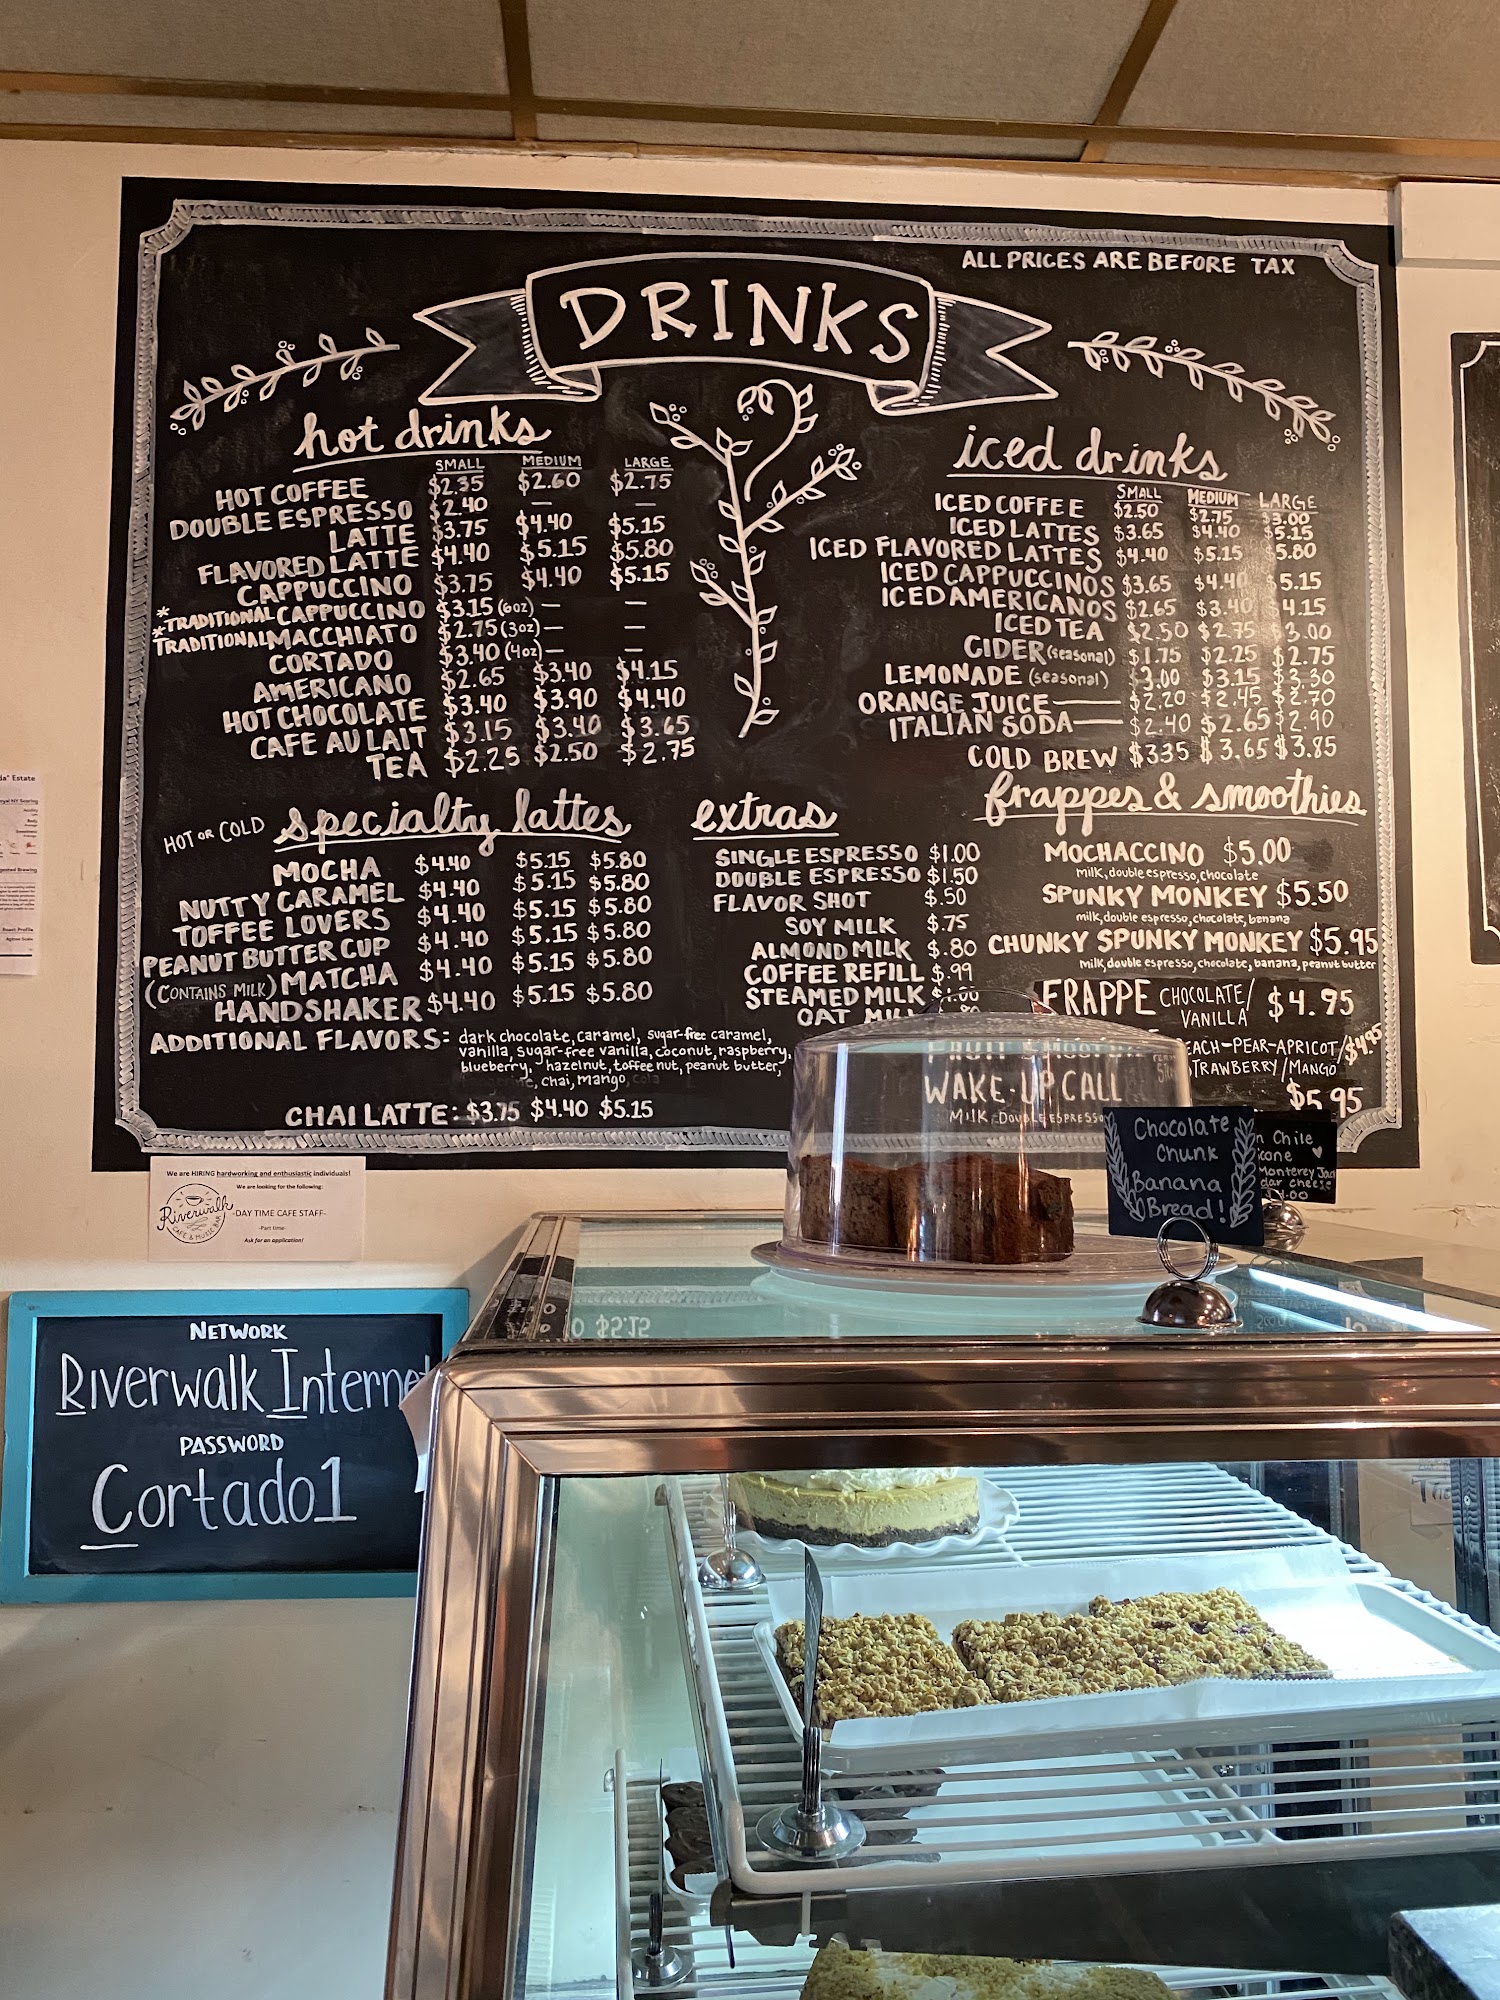 ALL PRICES ARE BEFORE TAX
DRINKS
hot drinks
SMALL MEDIUM LARGE
HOT COFFEE $2.35 $2.60 $2.75
DOUBLE ESPRESSO $2.40 — —
LATTE $3.75 $4.40 $5.15
FLAVORED LATTE $4.40 $5.15 $5.80
CAPPUCCINO $3.75 $4.40 $5.15
*TRADITIONAL CAPPUCCINO $3.15 (6oz) — —
*TRADITIONAL MACCHIATO $2.75 (3oz) — —
CORTADO $3.40 (4oz) — —
AMERICANO $2.65 $3.40 $4.15
HOT CHOCOLATE $3.40 $3.90 $4.40
CAFE AU LAIT $3.15 $3.40 $3.65
TEA $2.25 $2.50 $2.75
iced drinks
SMALL MEDIUM LARGE
ICED COFFEE $2.50 $2.75 $3.00
ICED LATTES $3.65 $4.40 $5.15
ICED FLAVORED LATTES $4.40 $5.15 $5.80
ICED CAPPUCCINOS $3.65 $4.40 $5.15
ICED AMERICANOS $2.65 $3.40 $4.15
ICED TEA $2.50 $2.75 $3.00
CIDER (seasonal) $1.75 $2.25 $2.75
LEMONADE (seasonal) $3.00 $3.15 $3.30
ORANGE JUICE — $2.20 $2.45 $2.70
ITALIAN SODA — $2.40 $2.65 $2.90
COLD BREW $335 $3.65 $3.85
HOT OR COLD specialty lattes
MOCHA $4.40 $5.15 $5.80
NUTTY CARAMEL $4.40 $5.15 $5.80
TOFFEE LOVERS $4.40 $5.15 $5.80
PEANUT BUTTER CUP $4.40 $5.15 $5.80
(CONTAINS MILK) MATCHA $4.40 $5.15 $5.80
HANDSHAKER $4.40 $5.15 $5.80
ADDITIONAL FLAVORS: dark chocolate, caramel, sugar-free caramel,
vanilla, sugar-free vanilla, coconut, raspberry,
blueberry, hazelnut, toffee nut, peanut butter,
chai, mango
CHAI LATTE: $3.75 $4.40 $5.15
extras
SINGLE ESPRESSO $1.00
DOUBLE ESPRESSO $1.50
FLAVOR SHOT $.50
SOY MILK $.75
ALMOND MILK $.80
COFFEE REFILL $.99
STEAMED MILK $1.00
OAT MILK .80
frappes & smoothies
MOCHACCINO $5.00
milk, double espresso, chocolate
SPUNKY MONKEY $5.50
milk, double espresso, chocolate, banana
CHUNKY SPUNKY MONKEY $5.95
milk, double espresso, chocolate, banana, peanut butter
FRAPPE CHOCOLATE/ VANILLA $4.95
FRUIT SMOOTHIE
EACH-PEAR-APRICOT/ $4.95
TRAWBERRY/MANGO
WAKE-UP CALL $5.95
MILK, DOUBLE ESPRESSO
Chocolate
Chunk
Banana
Bread!
n Chile
cone
Monterey Jack
dar cheese
We are HIRING hardworking and enthusiastic individuals!
We are looking for the following:
Riverwalk
CAFE & MUSIC BAR
-DAY TIME CAFE STAFF-
-Part time-
Ask for an application!
NETWORK
Riverwalk Internet
PASSWORD
Cortado1